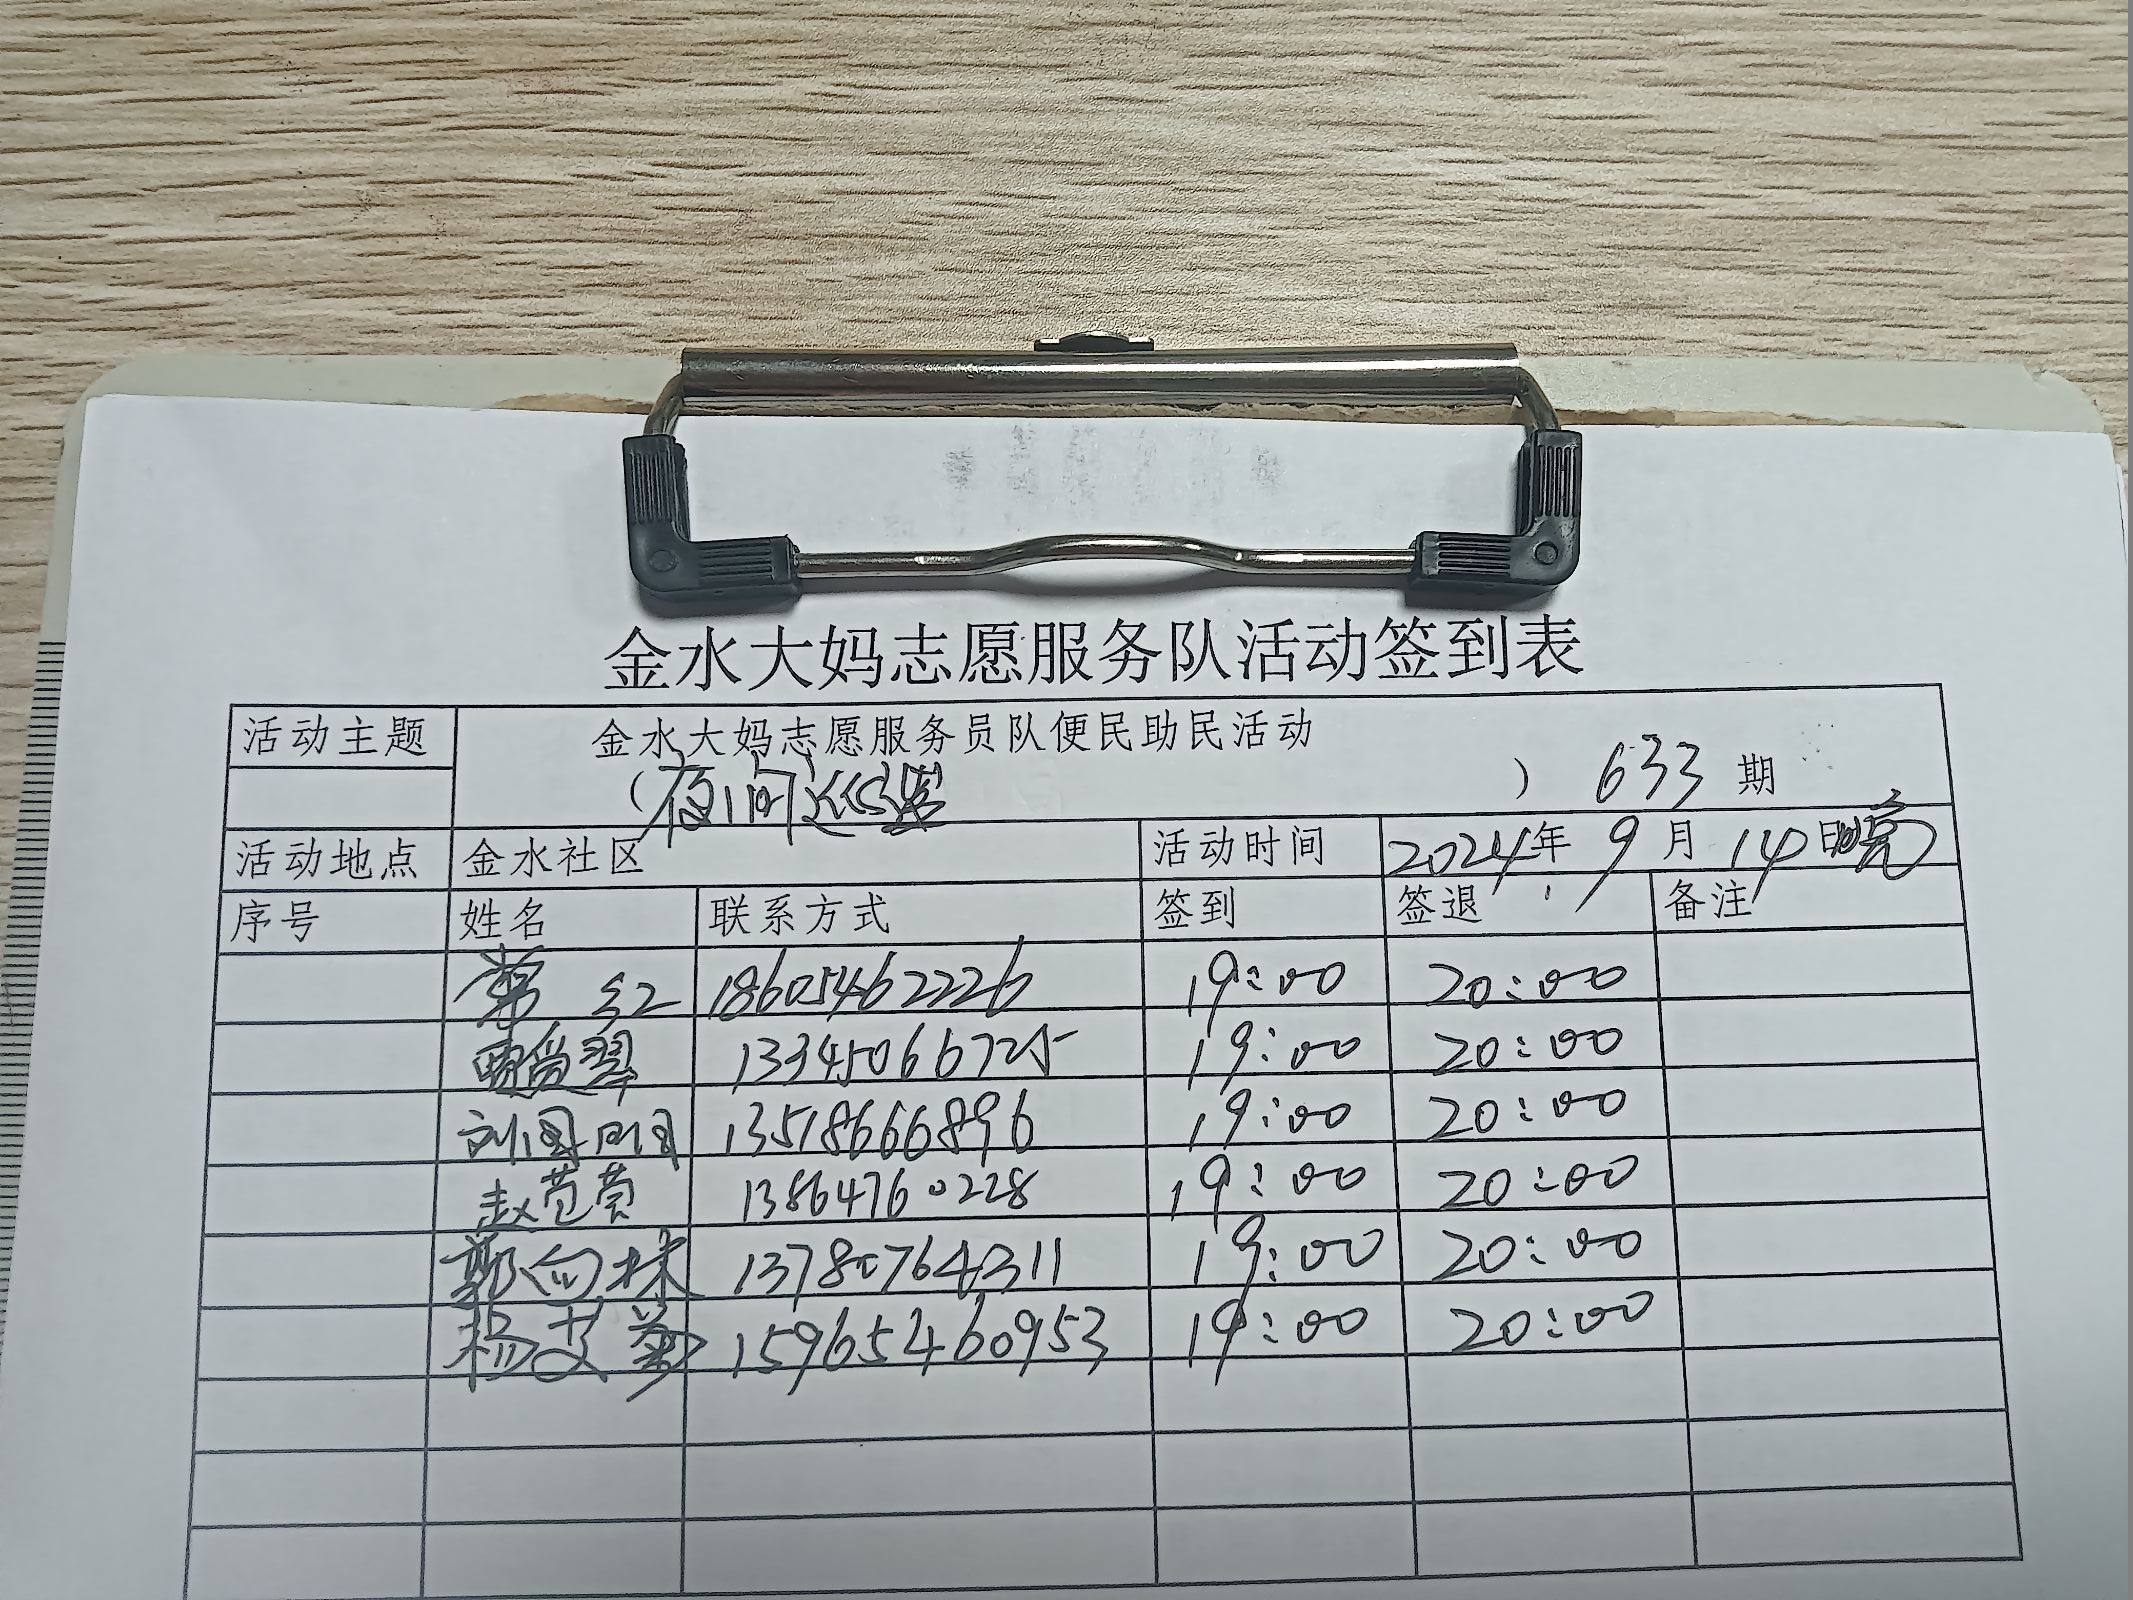 金水大妈志愿服务队活动签到表
活动主题 金水大妈志愿服务员队便民助民活动
（夜间巡逻 ） 633 期
活动地点 金水社区 活动时间 2024年 9月 14日晚
序号 姓名 联系方式 签到 签退 备注
红 18605462226 19:00 20:00
翠 13345066725 19:00 20:00
刘国 13518666896 19:00 20:00
赵 13864760228 19:00 20:00
郭向 13780764311 19:00 20:00
杨 15965460953 19:00 20:00